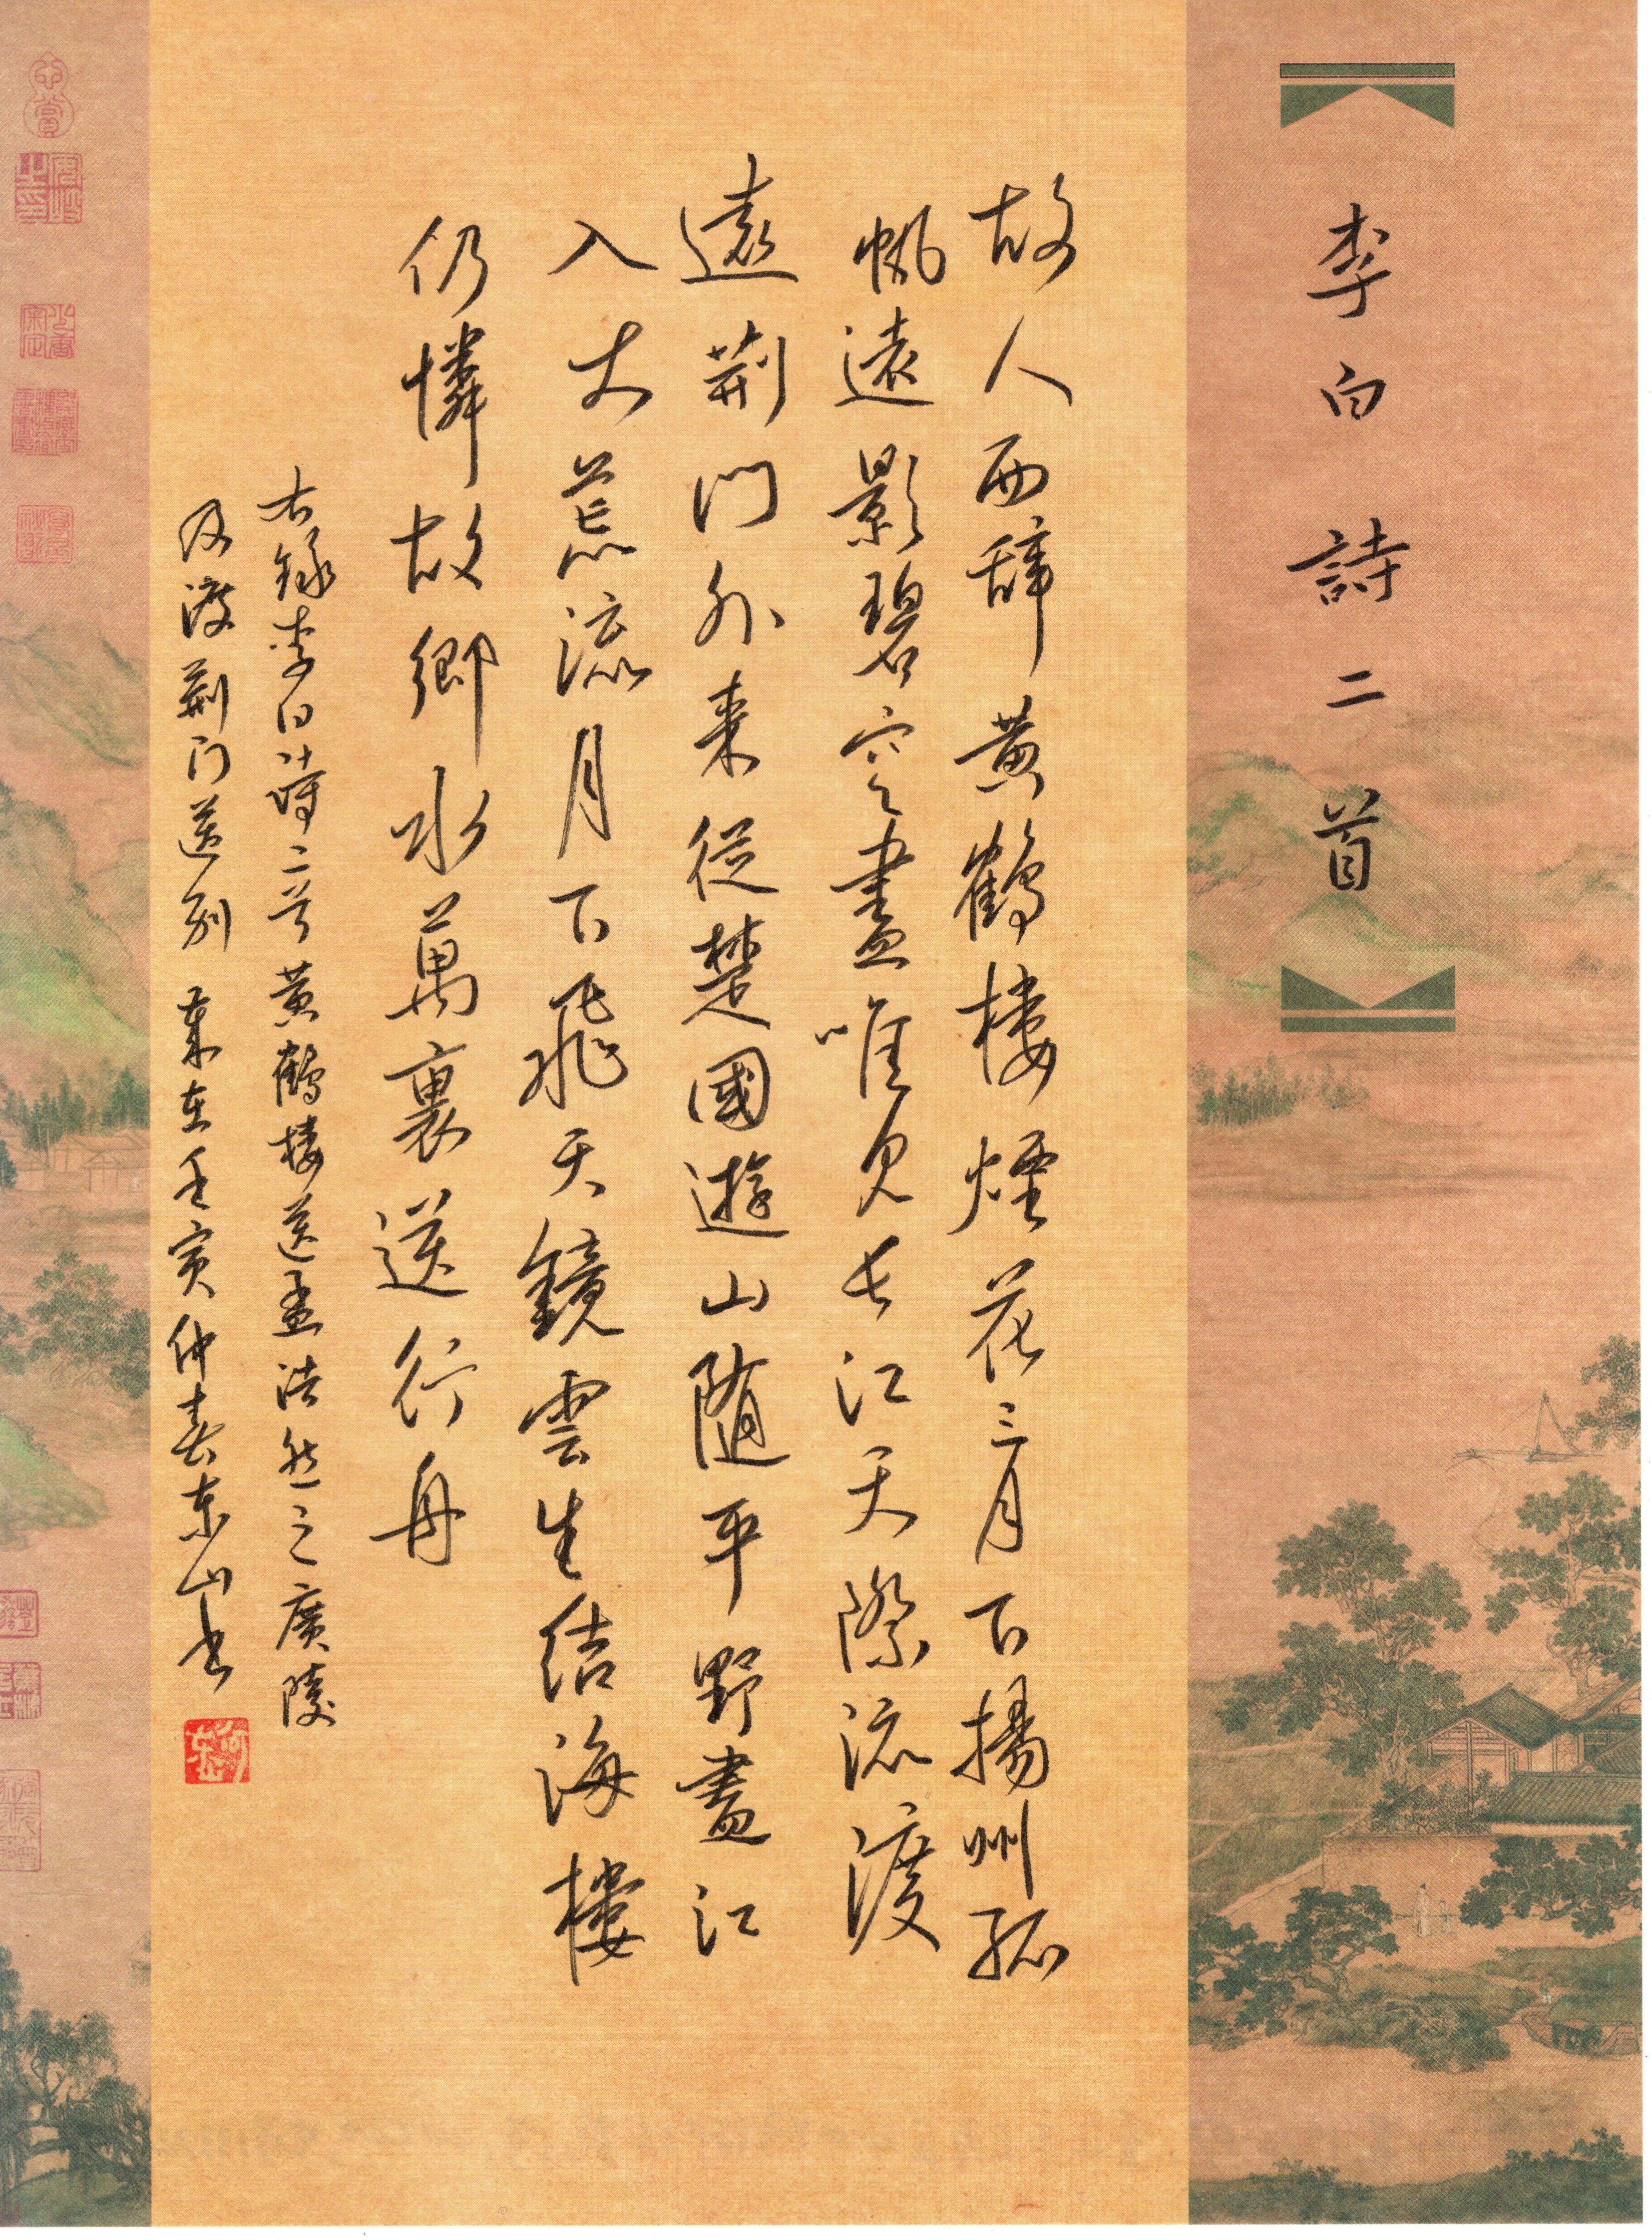 李白詩二首
故人西辞黄鶴樓煙花三月下揚州孤
帆遠影碧空盡唯見长江天際流渡
遠荊門外来從楚國遊山隨平野盡江
入大荒流月下飛天鏡雲生结海樓
仍憐故鄉水萬裏送行舟
右録李白诗二首黄鶴楼送孟浩然之廣陵
及渡荆门送别 歲在壬寅仲春东山书